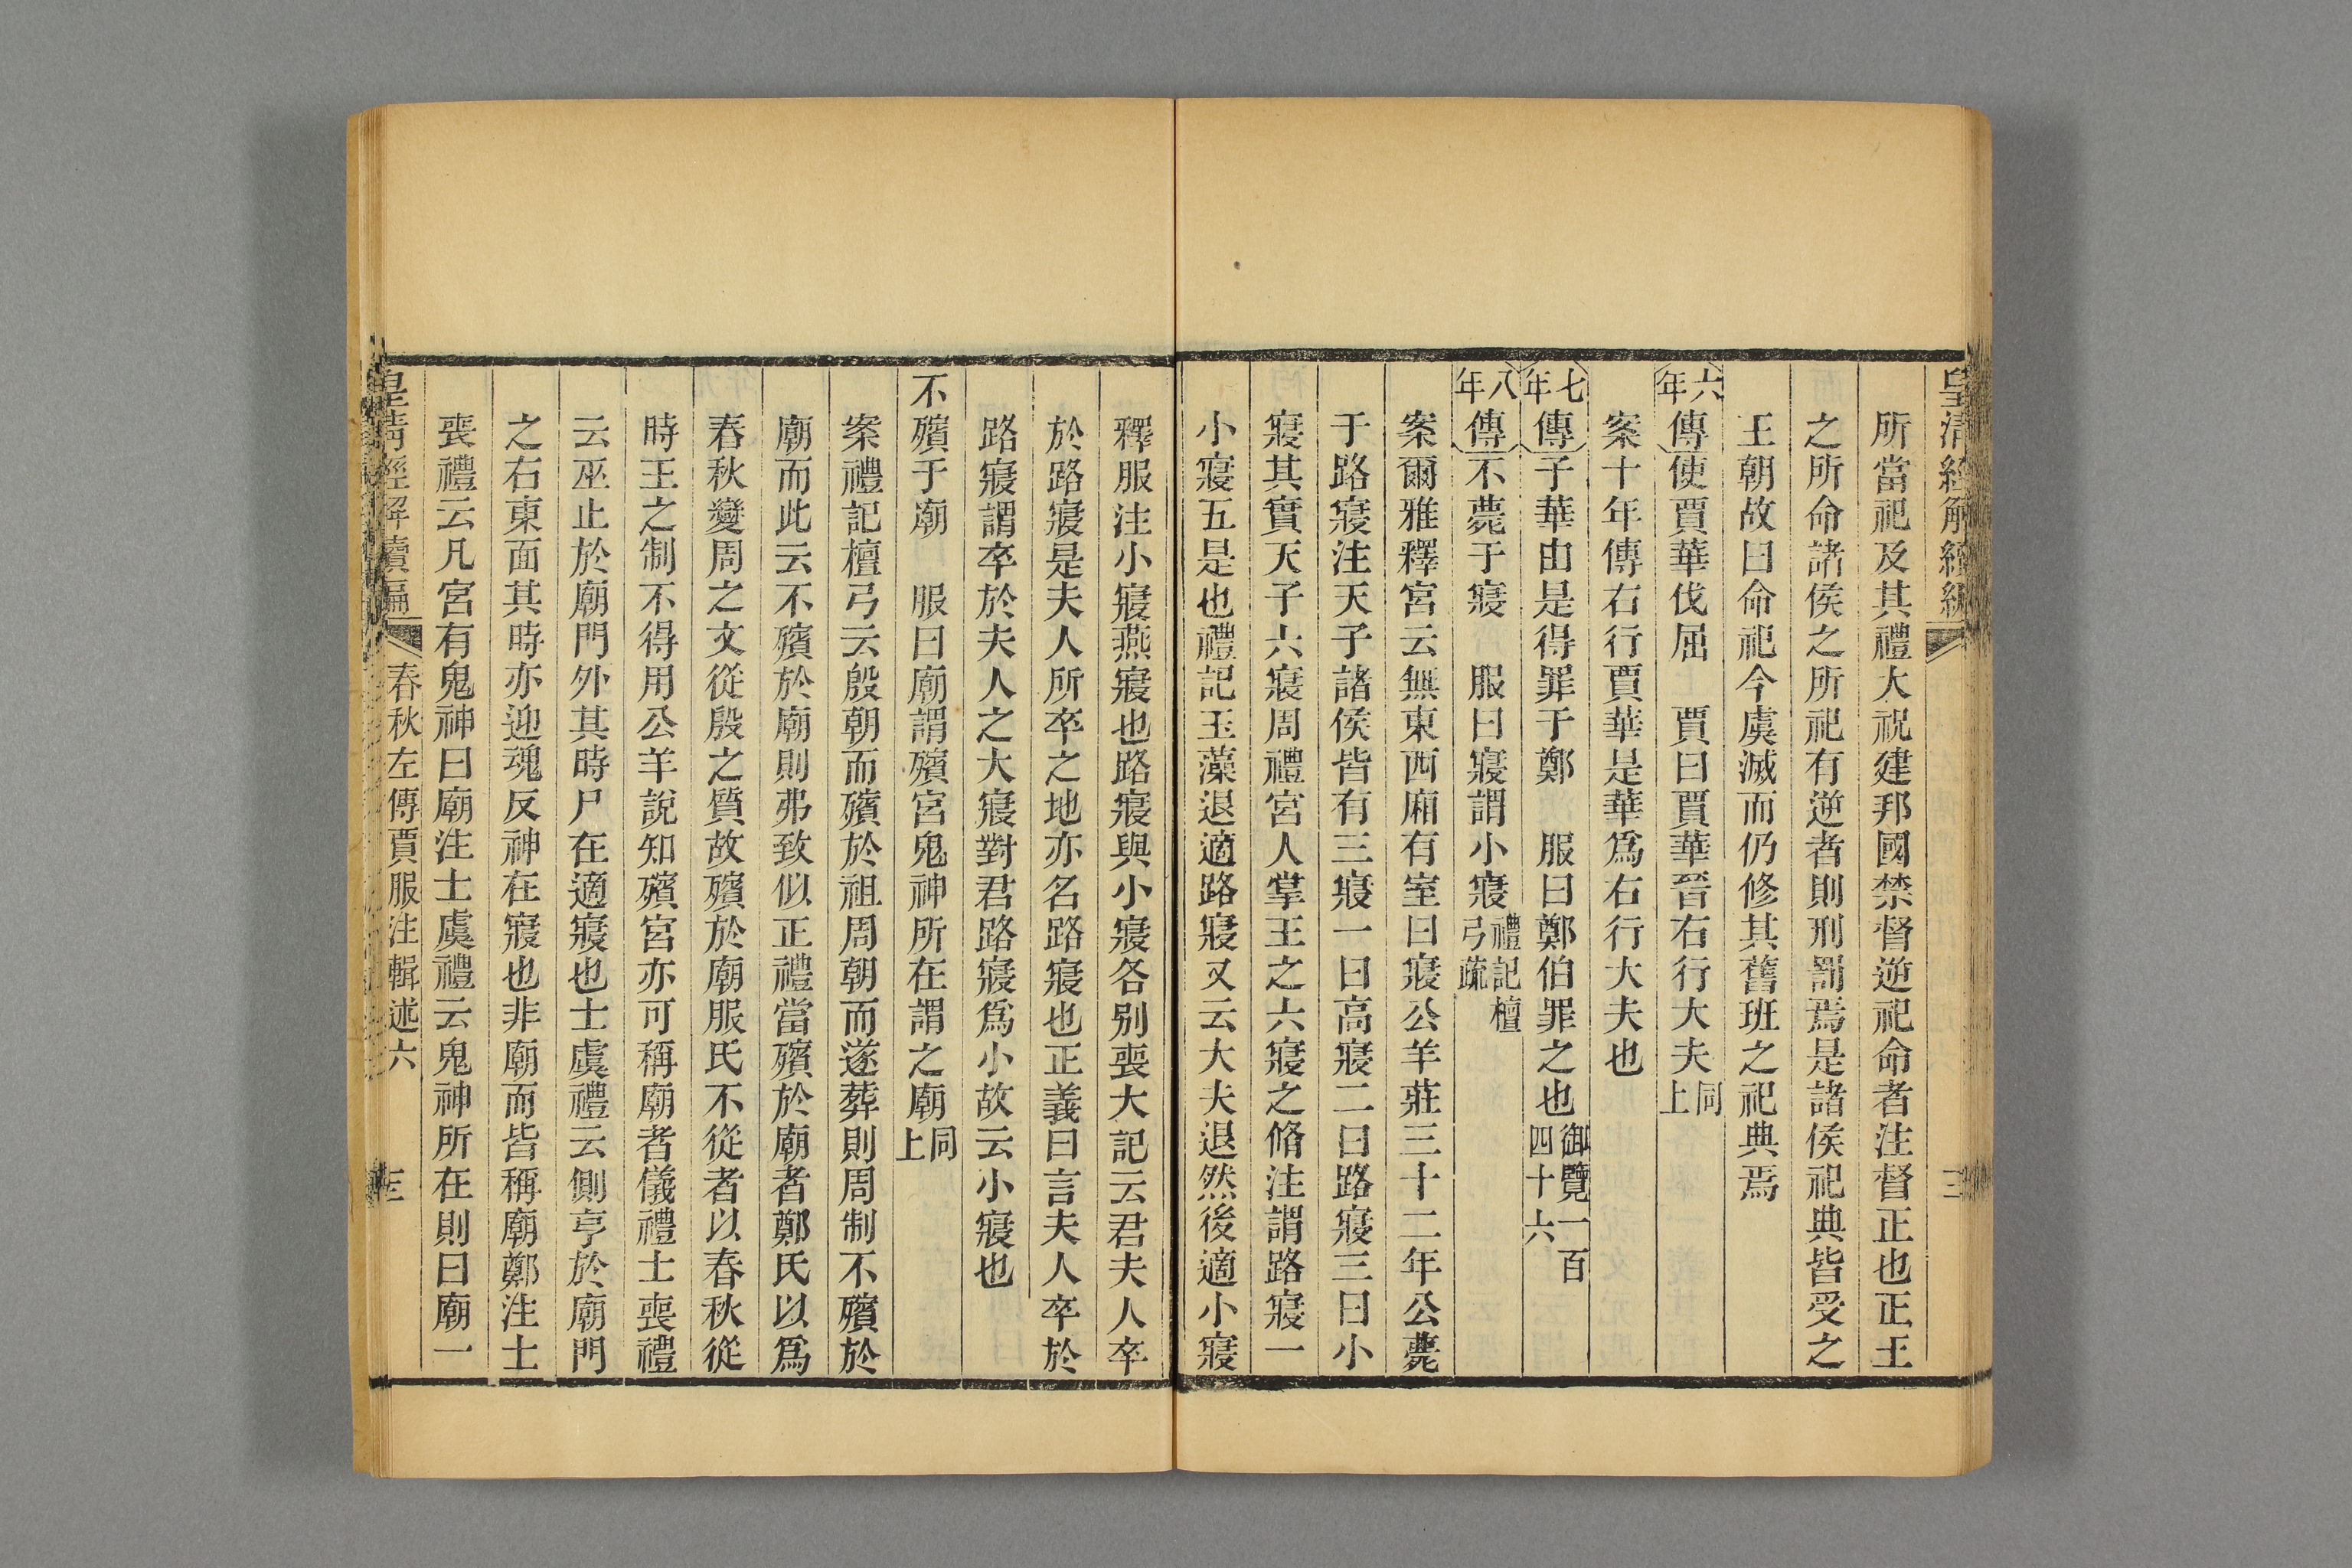 所當祀及其禮大祝建邦國禁督逆祀命者注督正也正王
之所命諸侯之所祀有逆者則刑罰焉是諸侯祀典皆受之
王朝故曰命祀今虞滅而仍修其舊班之祀典焉
六年傳使賈華伐屈　賈曰賈華晉右行大夫同上
案十年傳右行賈華是華爲右行大夫也
七年傳子華由是得罪于鄭　服曰鄭伯罪之也御覽一百四十六
八年傳不薨于寢　服曰寢謂小寢禮記檀弓疏
案爾雅釋宮云無東西廂有室曰寢公羊莊三十二年公薨
于路寢注天子諸侯皆有三寢一曰高寢二曰路寢三曰小
寢其實天子六寢周禮宮人掌王之六寢之脩注謂路寢一
小寢五是也禮記玉藻退適路寢又云大夫退然後適小寢
釋服注小寢燕寢也路寢與小寢各别喪大記云君夫人卒
於路寢是夫人所卒之地亦名路寢也正義曰言夫人卒於
路寢謂卒於夫人之大寢對君路寢爲小故云小寢也
不殯于廟　服曰廟謂殯宮鬼神所在謂之廟同上
案禮記檀弓云殷朝而殯於祖周朝而遂葬則周制不殯於
廟而此云不殯於廟則弗致似正禮當殯於廟者鄭氏以爲
春秋變周之文從殷之質故殯於廟服氏不從者以春秋從
時王之制不得用公羊說知殯宮亦可稱廟者儀禮士喪禮
云巫止於廟門外其時尸在適寢也士虞禮云側亨於廟門
之右東面其時亦迎魂反神在寢也非廟而皆稱廟鄭注士
喪禮云凡宮有鬼神曰廟注士虞禮云鬼神所在則曰廟一
皇清經解續編　春秋左傳賈服注輯述六